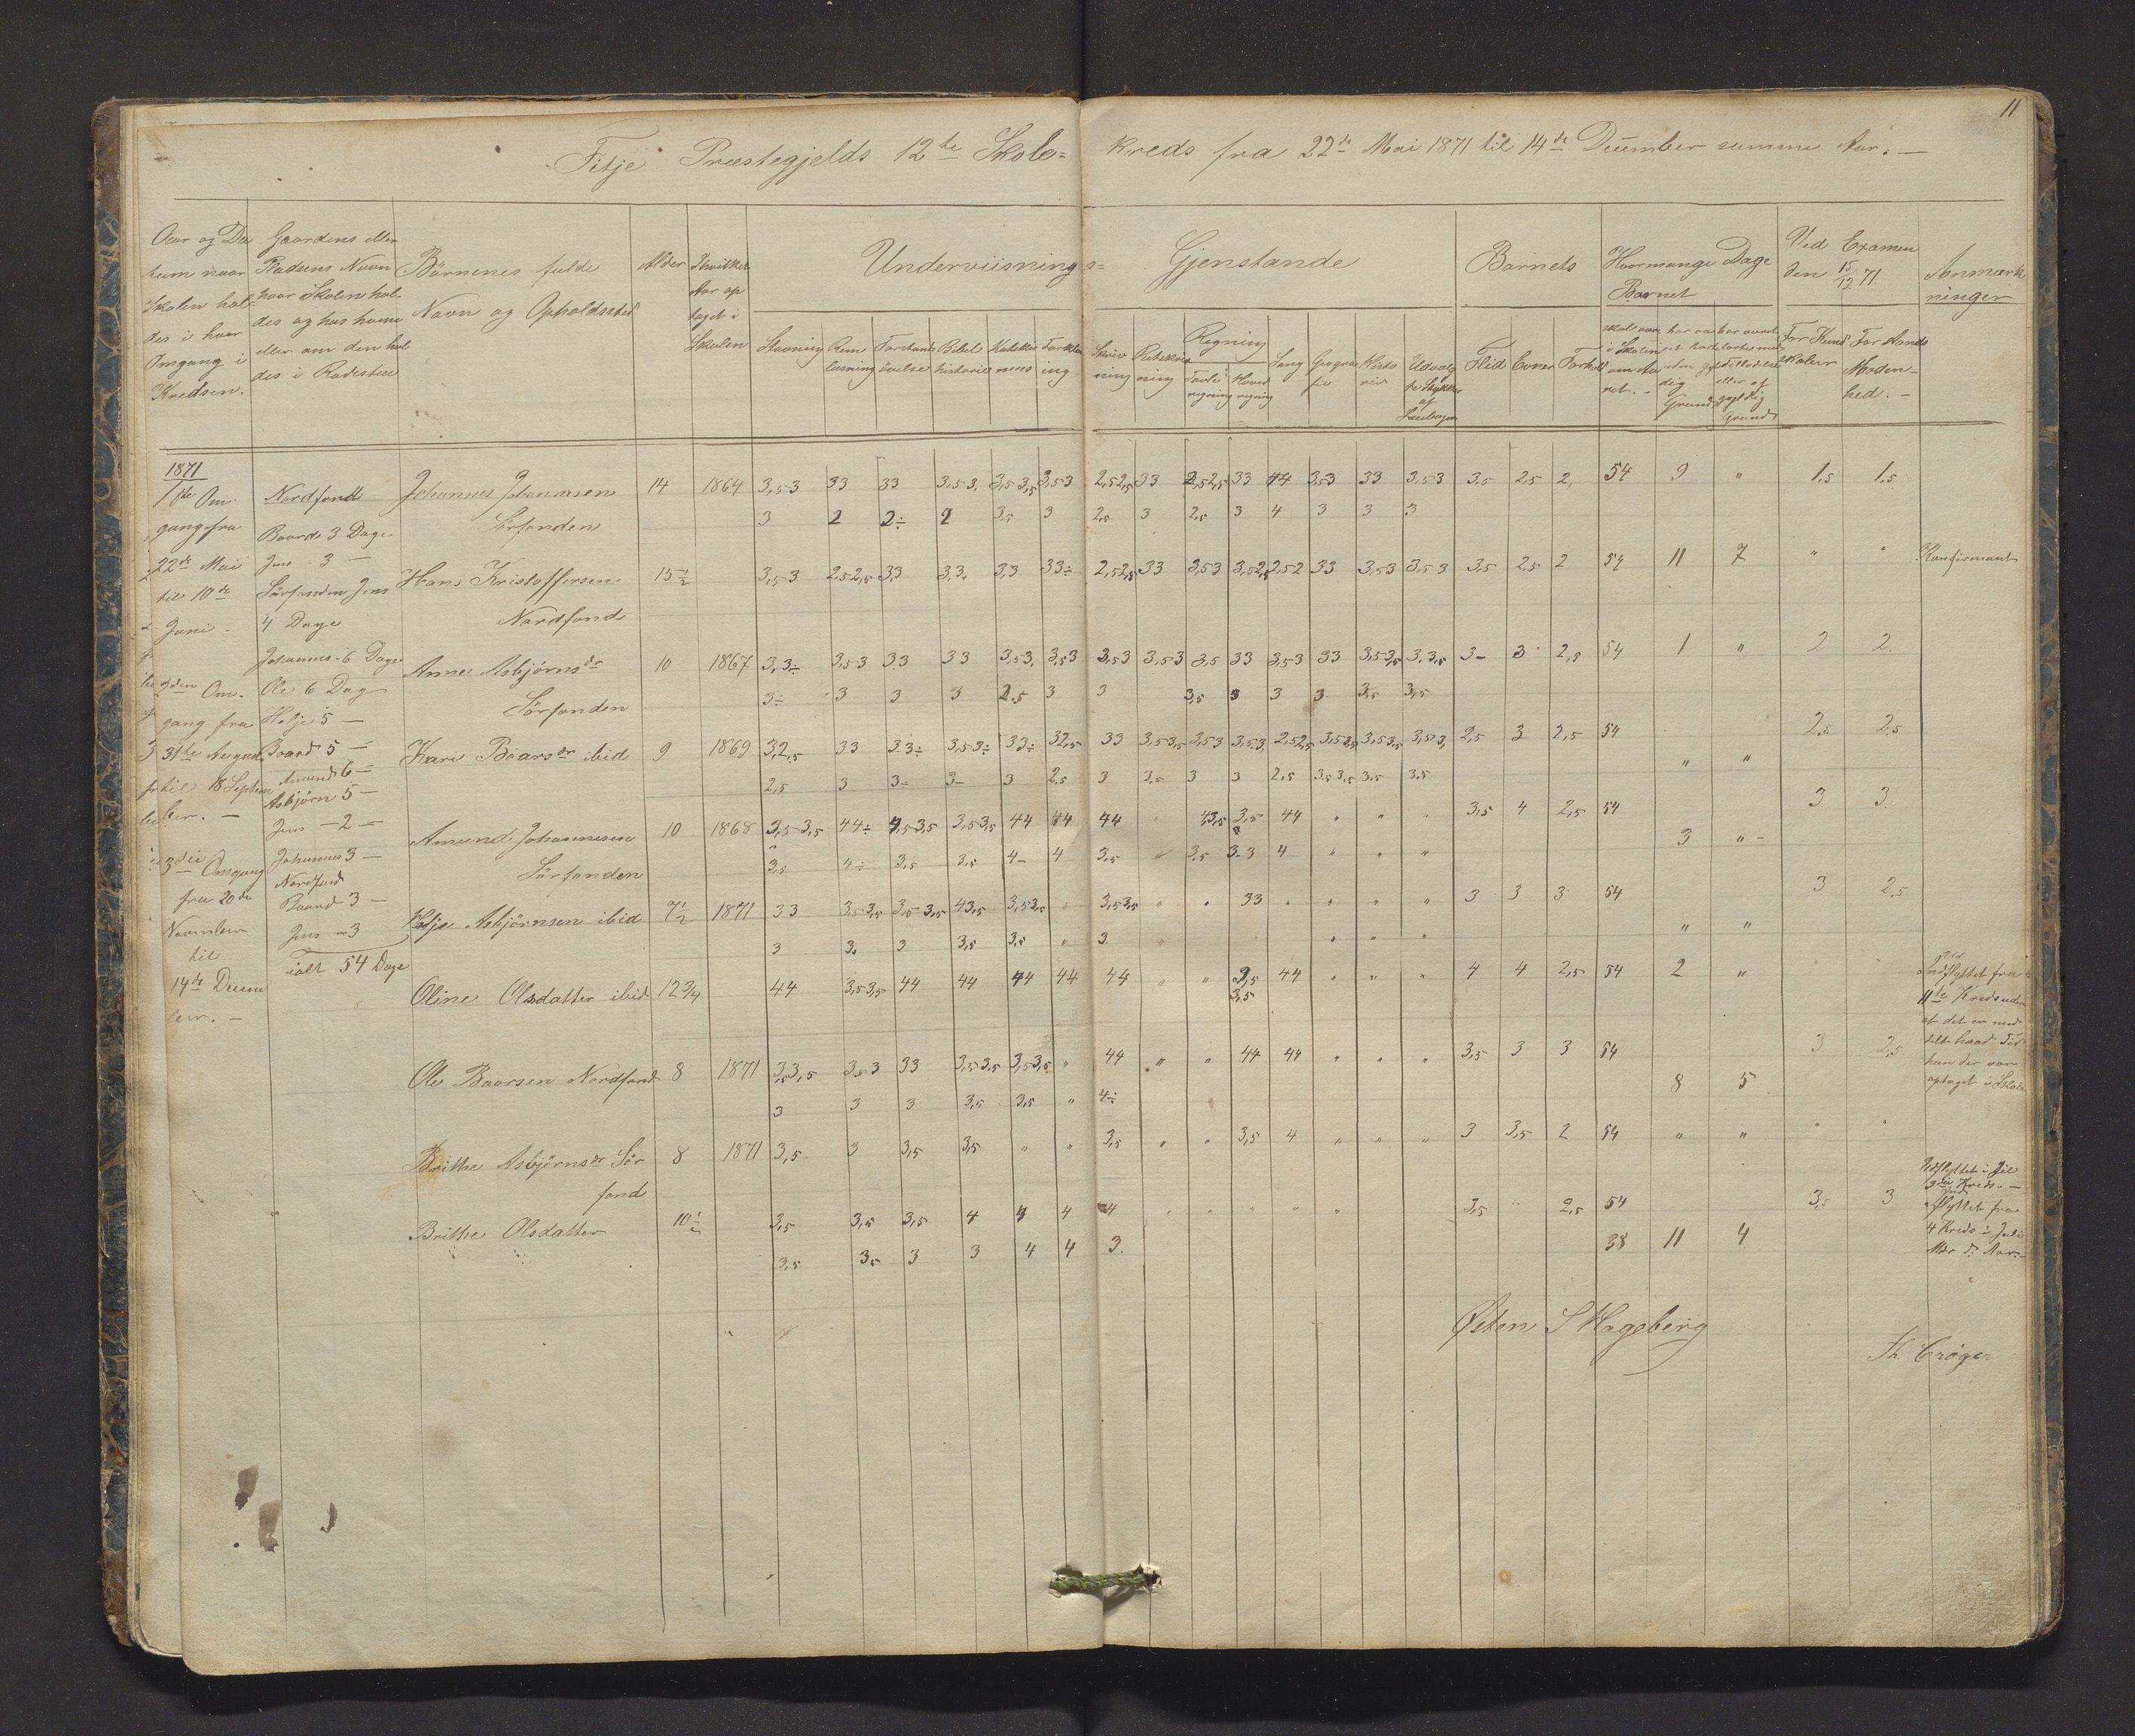 11
Fitje Præstegjelds 12te Skole= kreds fra 22de Mai 1871 til 14de December samme Aar. —
Aar og Da
tum naar
Skolen hol
des i hver
Omgang i
Kredsen.
Gaardens eller
Pladsens Navn
hvor Skolen hol
des og hos hvem
eller om den hol
des i Rodestue
Börnenes fulde
Navn og Opholdssted
Alder
Hvilket
Aar op
taget i
Skolen
Underviisnings= Gjenstande
Stavning
Ren
læsning
Forstands
övelse
Bibel
historie
Katekis
mus
Forkla
ring
Skriv
ning
Retskriv
ning
Regning
Tavle
regning
Hoved
regning
Sang
Geogra
fie
Histo
rie
Udvalg
te Stykker
af
Læsebogen
Barnets
Flid
Evner
Forhold
Hvormange Dage
Barnet
Grund
gyldig
Grund
Ved Examen
den 15/12 71
For Kund
skaber
For Aands
Moden-
hed. -
Anmærk
ninger
1871
1ste Om-
gang fra
22de Mai
til 10de
Juni -
2den Om-
gang fra
31te August
til 18 Septem
ber. —
3die Omgang
fra 20de
November
til
14de Decem
ber. —
Nordfond
Baard 3 Dage
Jens 3 —
Sörfonden Jens
4 Dage
Johannes 6 Dage
Ole 6 Dag
Helje 5 —
Baard 5 —
Amund 6 —
Asbjörn 5 —
Jens — 2 —
Johannes 3 —
Nordfond
Baard 3 —
Jens — 3
ialt 54 Dage
Johannes Johannesen 14 1864 3,5 3 33 33 3,5 3. 3,5 3,5 3,5 3 2,5 2,5 33 2,5 2,5 33 44 3,5 3 33 3,5 3 3,5 2,5 2, 54 9 " 1,5 1,5
Sörfonden 3 2 2÷ 2 3,5 3 2,5 3 2,5 3 4 3 3 3
Hans Kristoffersen 15½ 3,5 3 2,5 2,5 3,3 3,3. 3,3 33÷ 2,5 2,5 33 3,5 3 3,5 2,5 2,5 2 33 3,5 3 3,5 3 3,5 2,5 2 54 11 7 " " Konfirmant
Nordfond
Anne Asbjörnsdr 10 1867 3,3÷ 3,5 3 33 33 3,5 3. 3,5 3 3,5 3 3,5 3 3,5 33 3,5 3 33 3,5 3,5 3,3,5 3- 3 2,5 54 1 " 2 2.
Sörfonden 3÷ 3 3 3 2,5 3 3 3,5 3 3 3 3,5 3,5
Kari Baarsdr ibid 9 1869 3,2,5 33 3.3÷ 3,5 3÷ 33÷ 32,5 33 3,5 3,5 3,5 3 3,5 3. 2,5 2,5 3,5 3,5 3,5 3,5 3,5 3, 2,5 3 2,5 54 " " 2,5 2,5
2,5 3 3÷ 3- 3 2,5 3 3,5 3 3 2,5 3,5 3,5 3,5 3,5
Amund Johannesen 10 1868 3,5 3,5 44÷ 4,5 3,5 3,5 3,5 44 44 44 " 43,5 3,5 44 " " " 3,5 4 2,5 54 3 " - 3 3
Sörfonden 3,5 4÷ 3,5 3,5 4- 4 3,5 " 3,5 3-3 4 " " "
Helje Asbjörnsen ibid 7½ 1871 33 3,5 3,5 3,5 3,5 43,5 3,5 3,5 " 3,5 3,5 " " 33 " " " " 3 3 3 54 " " 3 2,5
3 3. 3 3,5 3,5 " 3. " " " "
Oline Olsdatter ibid 12¾ 44 3,5 3,5 44 44 44 44 44 " " 3,5 44 " " " 4 4 2,5 54 2 "
3,5
Indflyttet fra
11te Kreds uden
at det er med
delt hvad Tid
hun der var
optaget i Skole
Ole Baarsen Nordfond 8 1871 3,5 3,5 3,5 3 33 3,5 3,5 3,5 3,5 " 44 " " 44 44 " " " 3,5 3 3 54 8 5 3 2,5
3 3 3 3,5 3,5 " 4÷
Brithe Asbjörnsdr Sör 8 1871 3,5 3 3,5 3,5 " " 3,5 " " 3,5 4 " " " 3 3,5 2 54 " " " "
fond
Udflyttet i Jul
3die Kreds. —
Brithe Olsdatter 10½ 3,5 3,5 3,5 4 4 4 4 " " " " " 3,5 " 2,5 54 3,5 3
3,5 3,5 3 3 4 4 3. 38 11 4
Indflyttet fra
4 Kreds i Juli
Mdr d. Aar. —
Østen S Hageberg
Th. Crøger